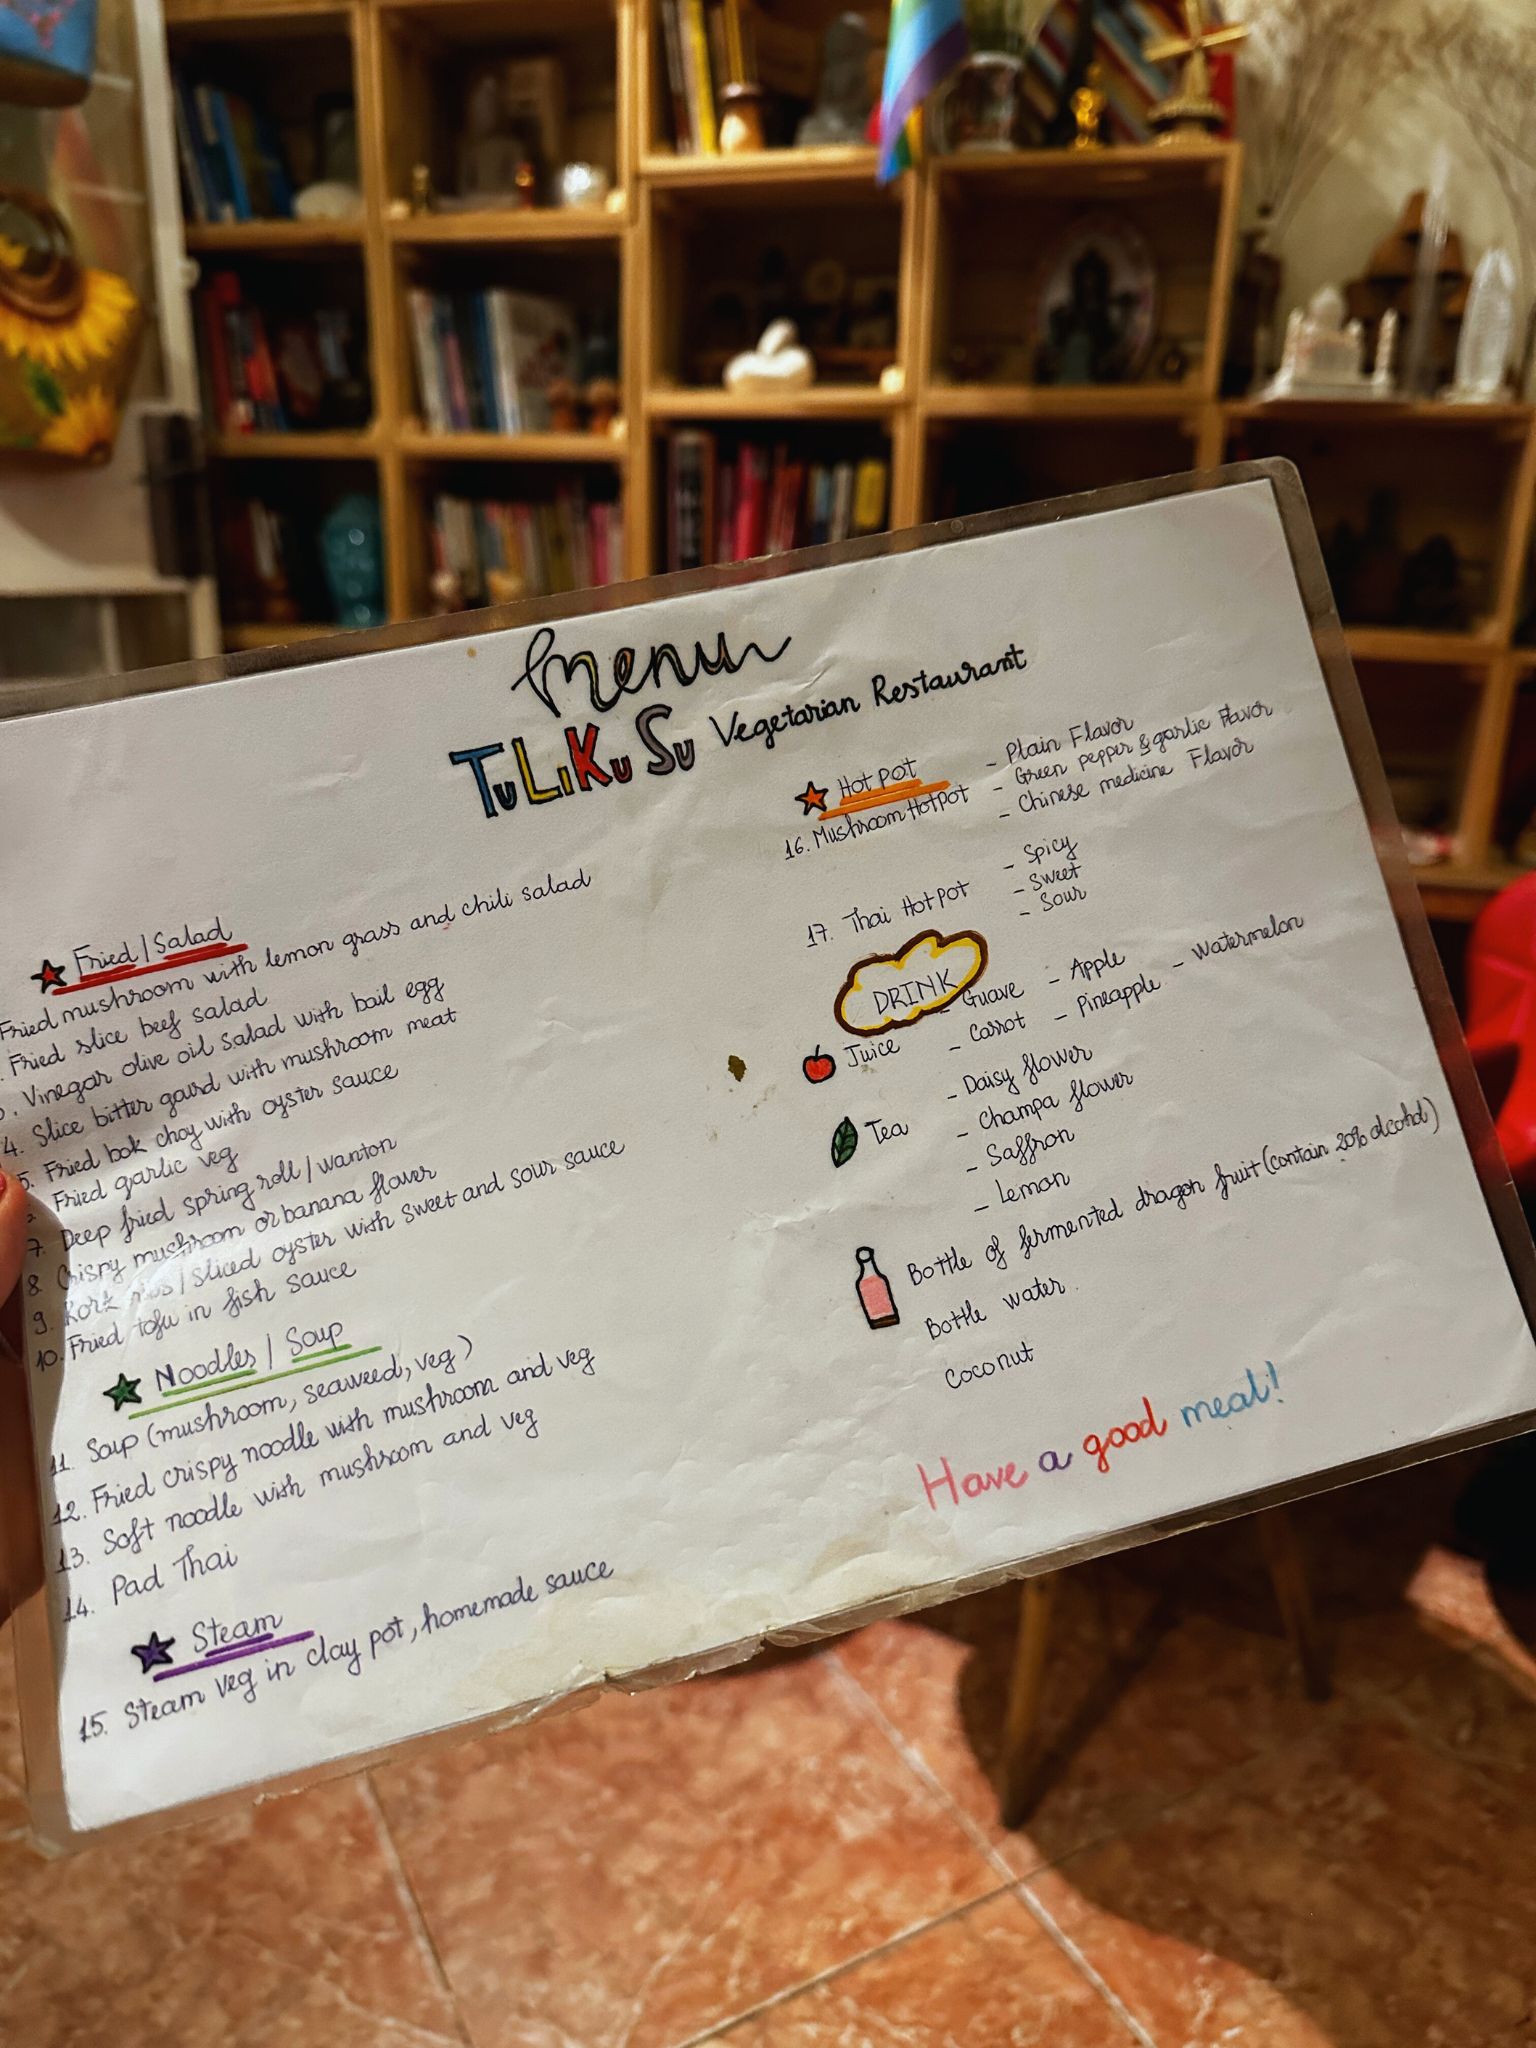 Menu
TuLiKuSu Vegetarian Restaurant
Fried / Salad
Fried mushroom with lemon grass and chili salad
. Fried slice beef salad
3. Vinegar olive oil salad with bail egg
4. Slice bitter gourd with mushroom meat
5. Fried bok choy with oyster sauce
Fried garlic veg
7. Deep fried spring roll / wanton
8. Crispy mushroom or banana flower
9. Pork ribs / sliced oyster with sweet and sour sauce
10. Fried tofu in fish sauce
Noodles / Soup
11. Soup (mushroom, seaweed, veg)
12. Fried crispy noodle with mushroom and veg
13. Soft noodle with mushroom and veg
14. Pad Thai
Steam
15. Steam veg in clay pot, homemade sauce
Hot pot
16. Mushroom Hotpot - Plain Flavor
- Green pepper & garlic Flavor
- Chinese medicine Flavor
17. Thai Hotpot - Spicy
- Sweet
- Sour
DRINK
Juice - Guave - Apple
- Carrot - Pineapple - Watermelon
Tea - Daisy flower
- Champa flower
- Saffron
- Lemon
Bottle of fermented dragon fruit (contain 20% alcohol)
Bottle water.
Coconut
Have a good meal!